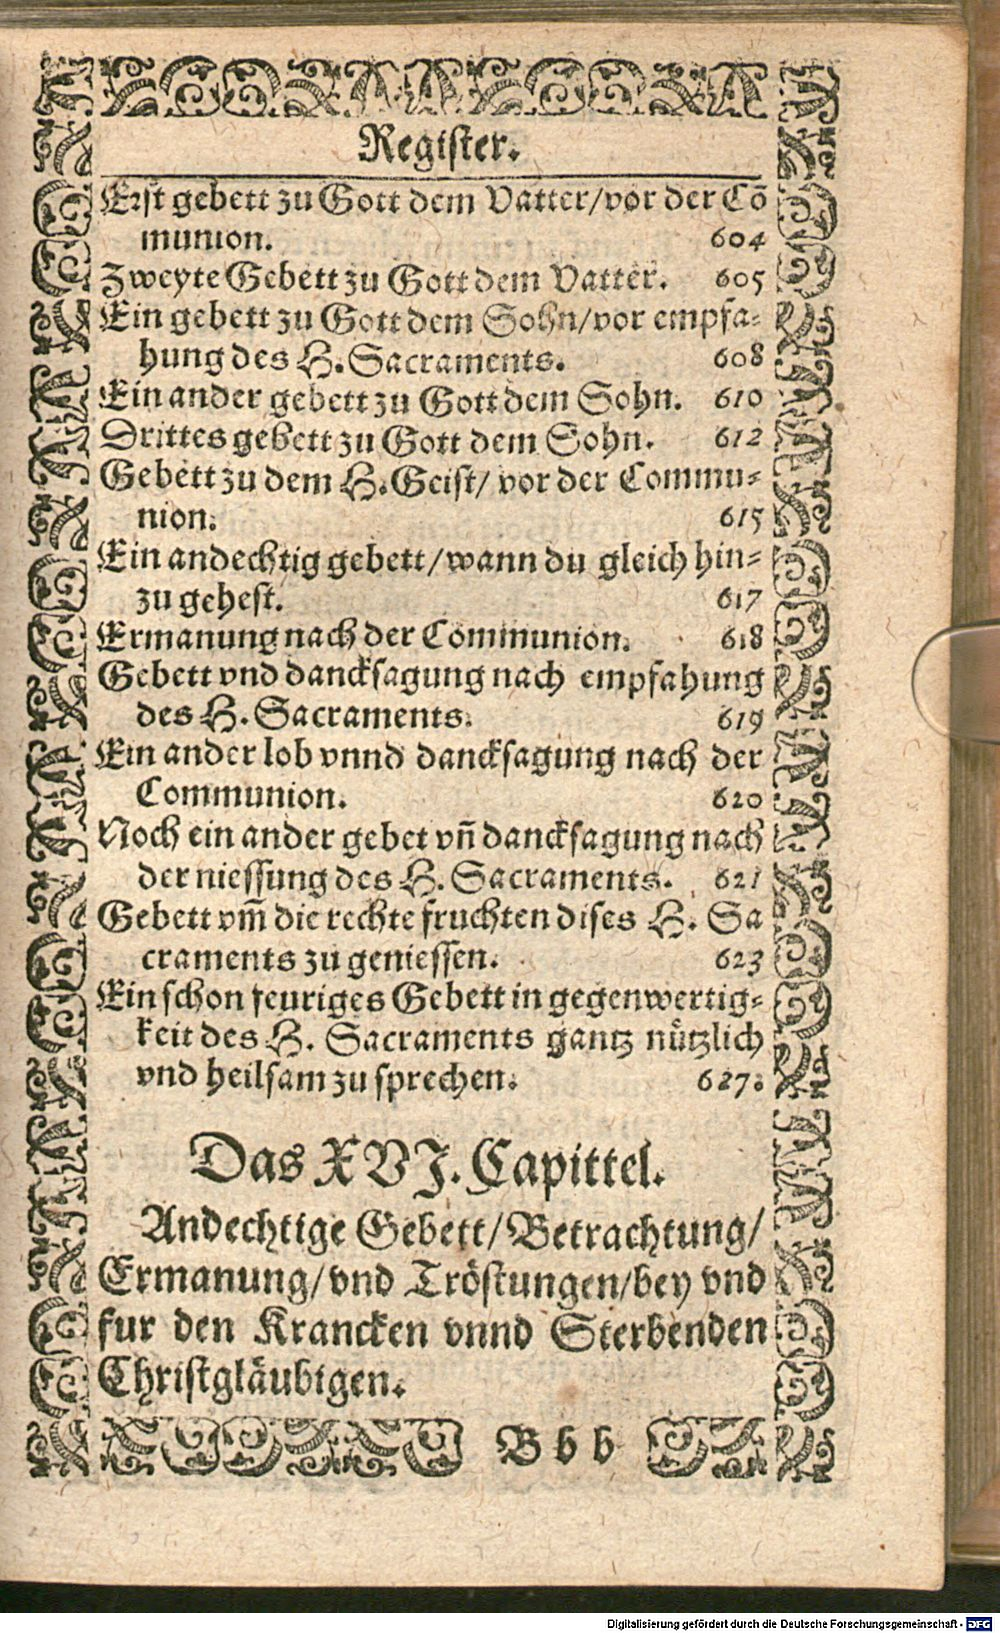 Register.
Erst gebett zu Gott dem Vatter/vor der Cõ
munion. 604
Zweyte Gebett zu Gott dem Vatter. 605
Ein gebett zu Gott dem Sohn/vor empfa-
hung des H. Sacraments. 608
Ein ander gebett zu Gott dem Sohn. 610
Drittes gebett zu Gott dem Sohn. 612
Gebett zu dem H. Geist/ vor der Commu-
nion. 615
Ein andechtig gebett/wann du gleich hin-
zu gehest. 617
Ermanung nach der Communion. 618
Gebett vnd dancksagung nach empfahung
des H. Sacraments. 619
Ein ander lob vnnd dancksagung nach der
Communion. 620
Noch ein ander gebet vñ dancksagung nach
der niessung des H. Sacraments. 621
Gebett vm̃ die rechte fruchten dises H. Sa
craments zu geniessen. 623
Ein schon feuriges Gebett in gegenwertig-
keit des H. Sacraments gantz nützlich
vnd heilsam zu sprechen. 627.
Das XVJ. Capittel.
Andechtige Gebett/Betrachtung/
Ermanung/vnd Tröstungen/bey vnd
fur den Krancken vnnd Sterbenden
Christgläubigen.
B b b
Digitalisierung gefördert durch die Deutsche Forschungsgemeinschaft - DFG